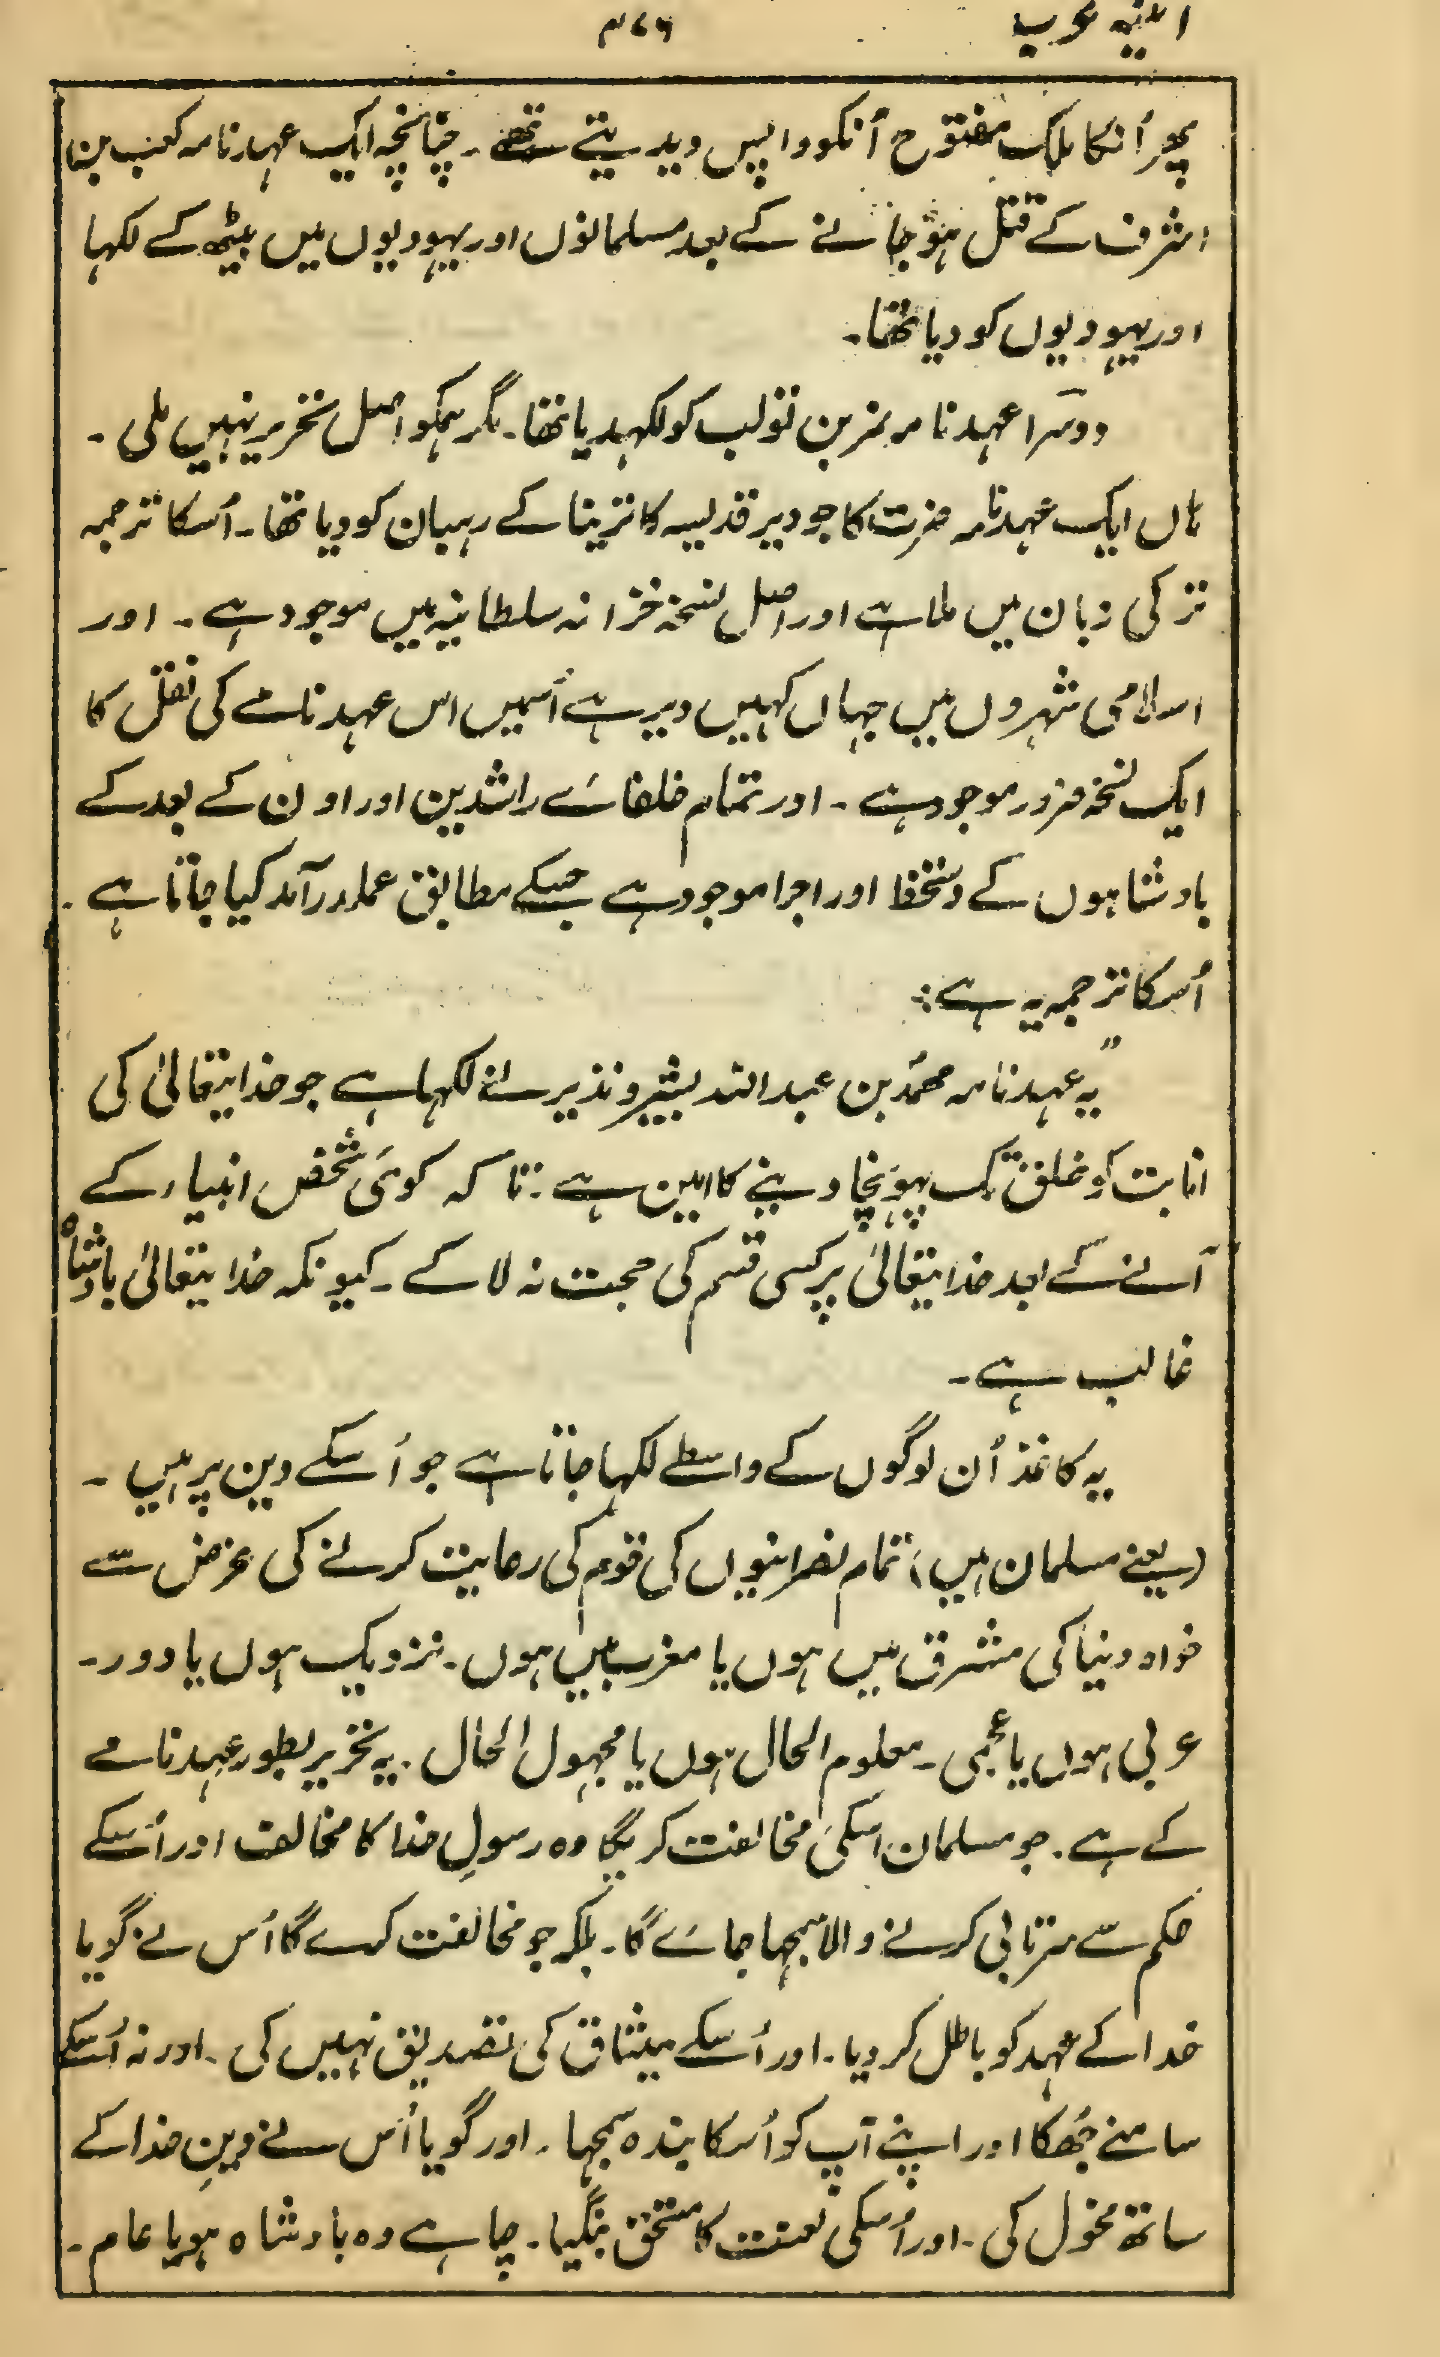 ابنیہ عرب ۳۷۶
پھر اُنکا ملک مفتوح اُنکو واپس دیدیتے تھے۔ چنانچہ ایک عہدنامہ کعب بن
اشرف کے قتل ہو جانے کے بعد مسلمانوں اور یہودیوں میں بیٹھ کے لکہا
اور یہودیوں کو دیا تھا۔
دوسرا عہدنامہ نمر بن تولب کو لکہدیا تھا۔ مگر ہمکو اصل تحریر نہیں ملی۔
ہاں ایک عہدنامہ حضرت کا جو دیر قدیسہ کاترینا کے رہبان کو دیا تھا۔ اُسکا ترجمہ
ترکی زبان میں ملتا ہے اور اصل نسخہ خزانہ سلطانیہ میں موجود ہے۔ اور
اسلامی شہروں میں جہاں کہیں دیر ہے اُسمیں اس عہدنامے کی نقل کا
ایک نسخہ ضرور موجود ہے۔ اور تمام خلفائے راشدین اور اون کے بعد کے
بادشاہوں کے دستخط اور اجرا موجود ہے جسکے مطابق عملدرآمد کیا جاتا ہے۔
اُسکا ترجمہ یہ ہے:
"یہ عہدنامہ محمدؐ بن عبداللہ بشیر و نذیر نے لکہا ہے جو خدایتعالیٰ کی
انابت کو خلق تک پہونچا دینے کا امین ہے۔ تاکہ کوئی شخص انبیاء کے
آنے کے بعد خدایتعالیٰ پر کسی قسم کی حجت نہ لا کے۔ کیونکہ خدایتعالیٰ بادشاہ
غالب ہے۔
یہ کاغذ اُن لوگوں کے واسطے لکہا جاتا ہے جو اُسکے دین پر ہیں۔
(یعنے مسلمان ہیں) تمام نصرانیوں کی قوم کی رعایت کرنے کی غرض سے
خواہ دنیا کی مشرق میں ہوں یا مغرب میں ہوں۔ نزدیک ہوں یا دور۔
عربی ہوں یا عجمی۔ معلوم الحال ہوں یا مجہول الحال۔ یہ تحریر بطور عہدنامے
کے ہے۔ جو مسلمان اسکی مخالفت کریگا وہ رسولِ خدا کا مخالف اور اُسکے
حکم سے سرتابی کرنے والا سمجہا جائے گا۔ بلکہ جو مخالفت کرے گا اُس نے گویا
خدا کے عہد کو باطل کر دیا۔ اور اُسکے میثاق کی تصدیق نہیں کی۔ اور نہ اُسکے
سامنے جھکا اور اپنے آپ کو اُسکا بندہ سمجہا۔ اور گویا اُس نے دینِ خدا کے
ساتھ مخول کی۔ اور اُسکی لعنت کا مستحق بنگیا۔ چاہے وہ بادشاہ ہو یا عام۔